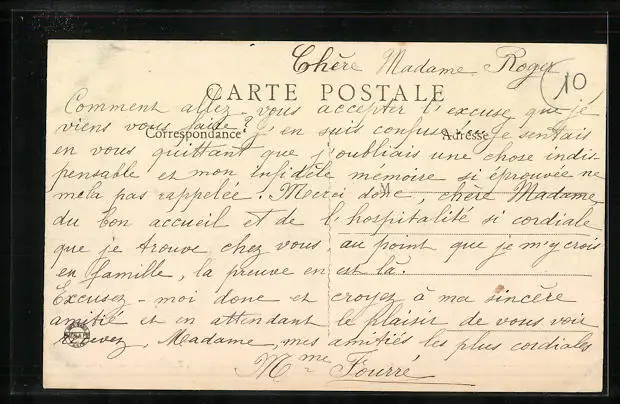 Chère Madame Roger
10
CARTE POSTALE
Comment allez-vous accepter l'excuse que je
viens vous faire? J'en suis confuse.... Je sentais
Correspondance
Adresse
en vous quittant que j'oubliais une chose indis-
pensable et mon infidèle mémoire si éprouvée ne
me la pas rappelée! Merci donc, chère Madame,
du bon accueil et de l'hospitalité si cordiale
que je trouve chez vous, au point que je m'y crois
en famille, la preuve en est là.
Excusez-moi donc et croyez à ma sincère
amitié et en attendant le plaisir de vous voir
recevez, Madame, mes amitiés les plus cordiales
Mme Fourré